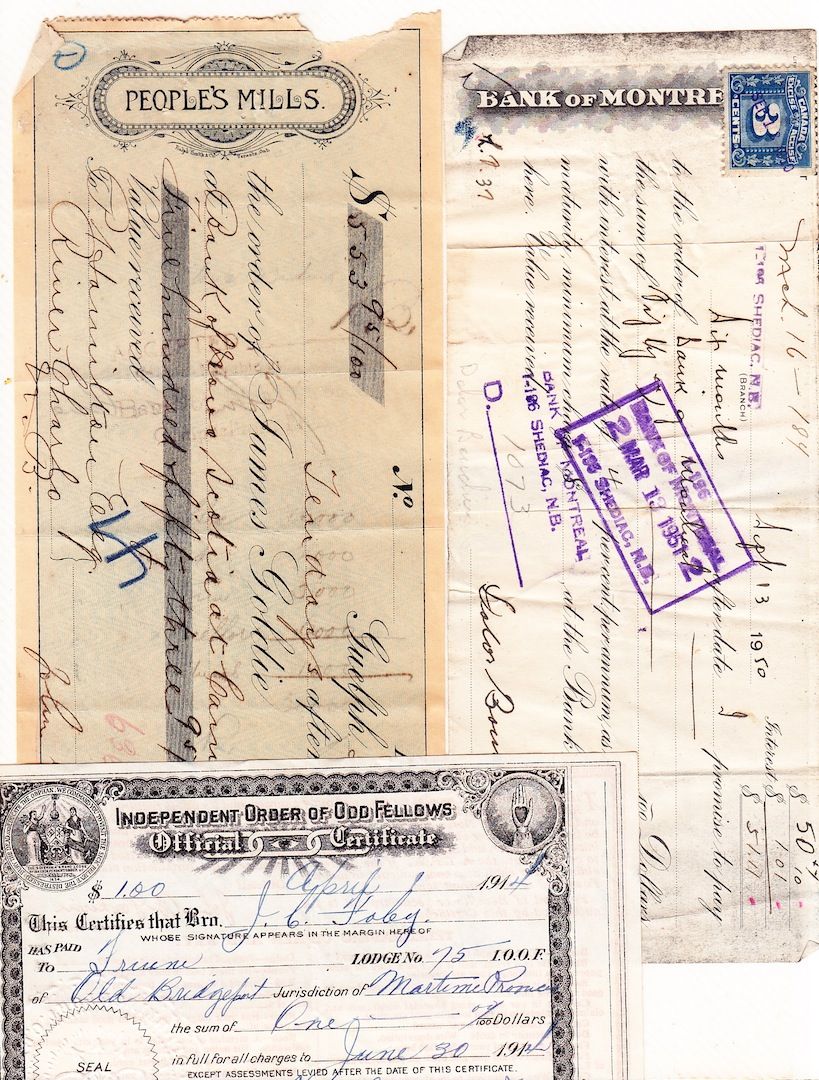 PEOPLE'S MILLS.
$ 553 95/100
No
Guelph,
Ten days after
the order of James Goldie
at Bank of Nova Scotia at
five hundred fifty three 95/
Value received
To Hamilton Esq.
River Charlo
N.B.
John
BANK OF MONTRE
CANADA
EXCISE ACCISE
3
CENTS
L.P. 37
Mch. 16 - 184
1-186 SHEDIAC, N.B.
(BRANCH)
Sept 13 1950
Six months after date I promise to pay
to the order of Bank of Montreal
the sum of Fifty
Dollars
with interest at the rate of 4 percent per annum, as
maturity, minimum charge, at the Bank
here. Value received
Interest $ 1.01
BANK OF MONTREAL
1-186 SHEDIAC, N.B.
D. 1073
186
BANK OF MONTREAL
2 MAR 13 1951 2
1-186 SHEDIAC, N.B.
INDEPENDENT ORDER OF ODD FELLOWS
Official Certificate
$ 1.00 April 1 1914
This Certifies that Bro. J. C. Foley.
WHOSE SIGNATURE APPEARS IN THE MARGIN HEREOF
HAS PAID
To Triune LODGE No. 75 I.O.O.F.
of Old Bridgeport Jurisdiction of Maritime Provinces
the sum of One 00/100 Dollars
in full for all charges to June 30 1914
EXCEPT ASSESSMENTS LEVIED AFTER THE DATE OF THIS CERTIFICATE.
SEAL